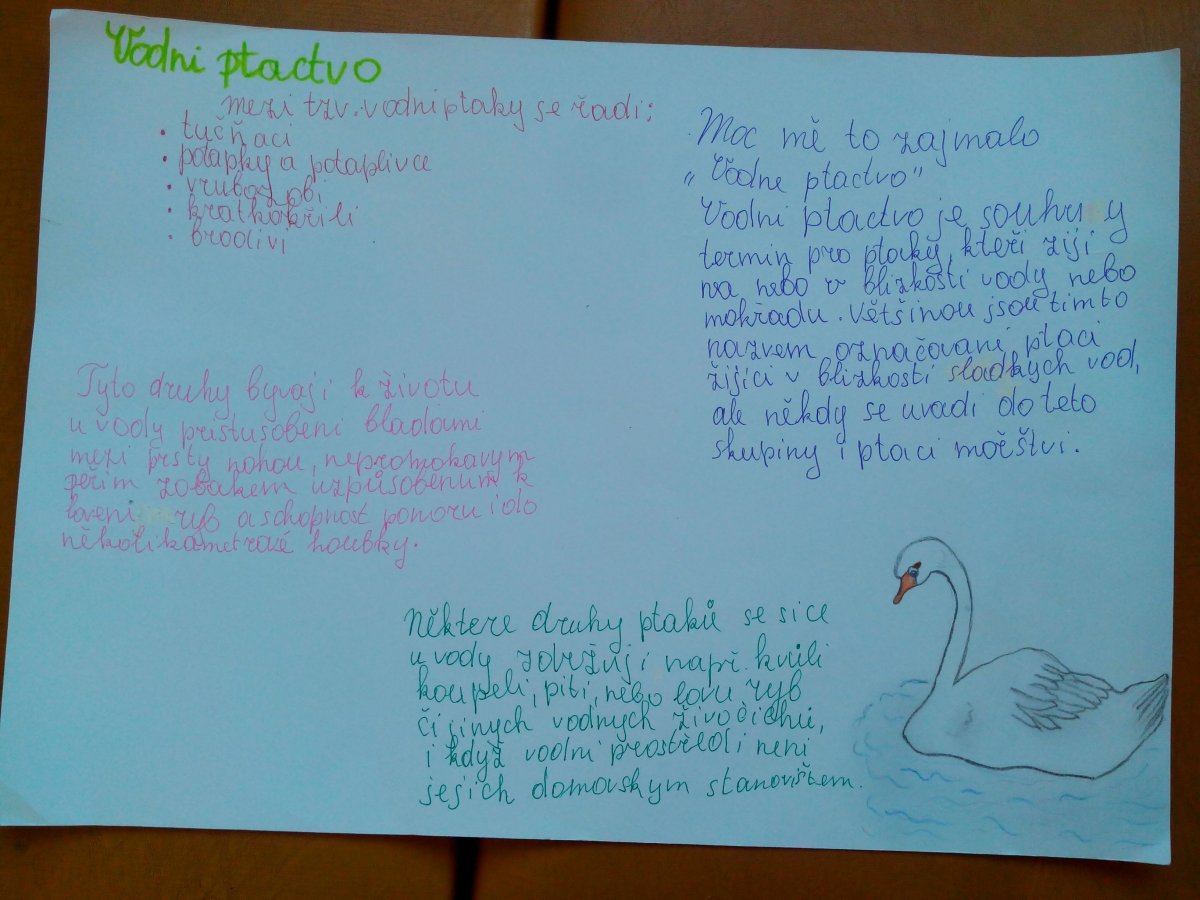 Vodni ptactvo
mezi tzv. vodni ptaky se řadi:
• tyčňaci
• potapky a potaplivce
• vrubozobi
• kratkokřili
• brodivi
Moc mě to zajmalo
„Vodne ptactvo"
Vodni ptactvo je souhrny
termin pro ptaky, kteři žiji
na nebo v blizkosti vody nebo
mokřadu. většinou jsou timto
nazvem označovani ptaci
žijici v blizkosti sladkych vod,
ale někdy se uvadi do teto
skupiny i ptaci mořštvi.
Tyto druhy byvaji k životu
u vody pristusobeni bladami
mezi prsty nohou, nepromokavym
peřim zobakem uzpůsobenum k
loveni ryb a schopnost ponoru i do
několikametrové houbky.
Některe druhy ptaků se sice
u vody zdržuji např. kvuli
koupeli, piti, nebo lovu ryb
či jinych vodnych živočichů,
i když vodni prostředi neni
jejich domovskym stanovištem.